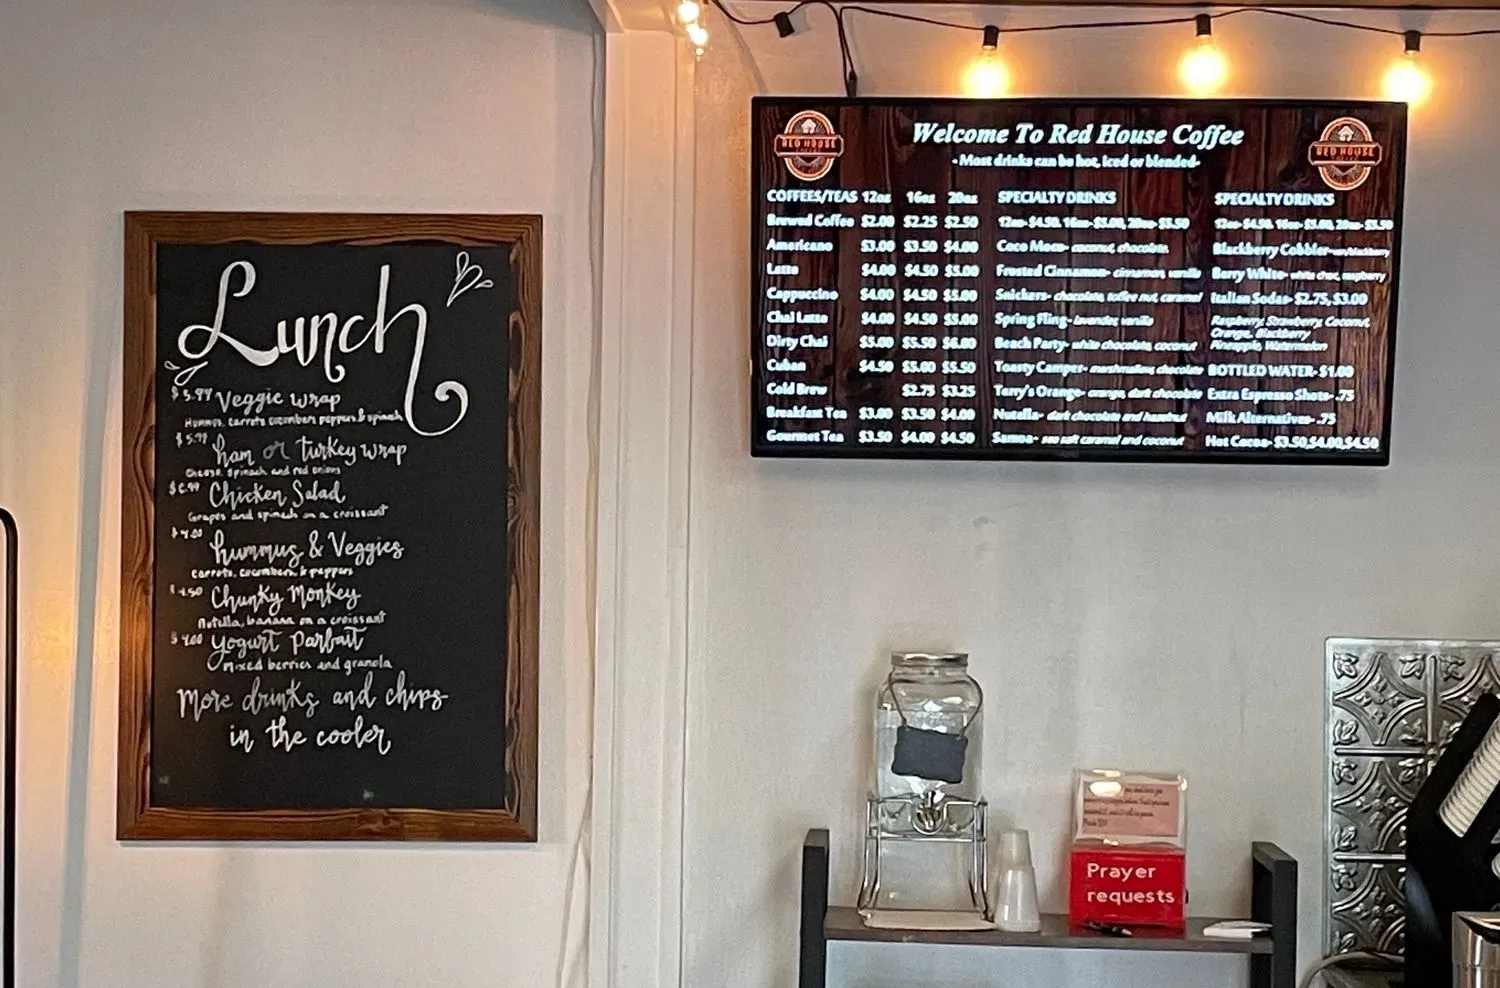 Lunch
$5.99 Veggie wrap
Hummus, carrots cucumbers peppers & spinach
$5.99 ham or turkey wrap
Cheese, spinach and red onions
$6.99 Chicken Salad
Grapes and spinach on a croissant
$4.00 hummus & Veggies
carrots, cucumbers, & peppers
$4.50 Chunky Monkey
Nutella, banana on a croissant
$4.00 yogurt Parfait
Mixed berries and granola
More drinks and chips-
in the cooler
RED HOUSE
Welcome To Red House Coffee
-Most drinks can be hot, iced or blended-
RED HOUSE
COFFEES/TEAS 12oz 16oz 20oz
Brewed Coffee $2.00 $2.25 $2.50
Americano $3.00 $3.50 $4.00
Latte $4.00 $4.50 $5.00
Cappuccino $4.00 $4.50 $5.00
Chai Latte $4.00 $4.50 $5.00
Dirty Chai $5.00 $5.50 $6.00
Cuban $4.50 $5.00 $5.50
Cold Brew $2.75 $3.25
Breakfast Tea $3.00 $3.50 $4.00
Gourmet Tea $3.50 $4.00 $4.50
SPECIALTY DRINKS
12oz- $4.50, 16oz- $5.00, 20oz- $5.50
Coco Moco- coconut, chocolate
Frosted Cinnamon- cinnamon, vanilla
Snickers- chocolate, toffee nut, caramel
Spring Fling- lavender, vanilla
Beach Party- white chocolate, coconut
Toasty Camper- marshmallow, chocolate
Terry's Orange- orange, dark chocolate
Nutella- dark chocolate and hazelnut
Samoa- sea salt caramel and coconut
SPECIALTY DRINKS
12oz- $4.50, 16oz- $5.00, 20oz- $5.50
Blackberry Cobbler-
Berry White- white choc, raspberry
Italian Sodas- $2.75, $3.00
Raspberry, Strawberry, Coconut,
Orange, Blackberry
Pineapple, Watermelon
BOTTLED WATER- $1.00
Extra Espresso Shots- .75
Milk Alternatives- .75
Hot Cocoa- $3.50,$4.00,$4.50
Prayer
requests